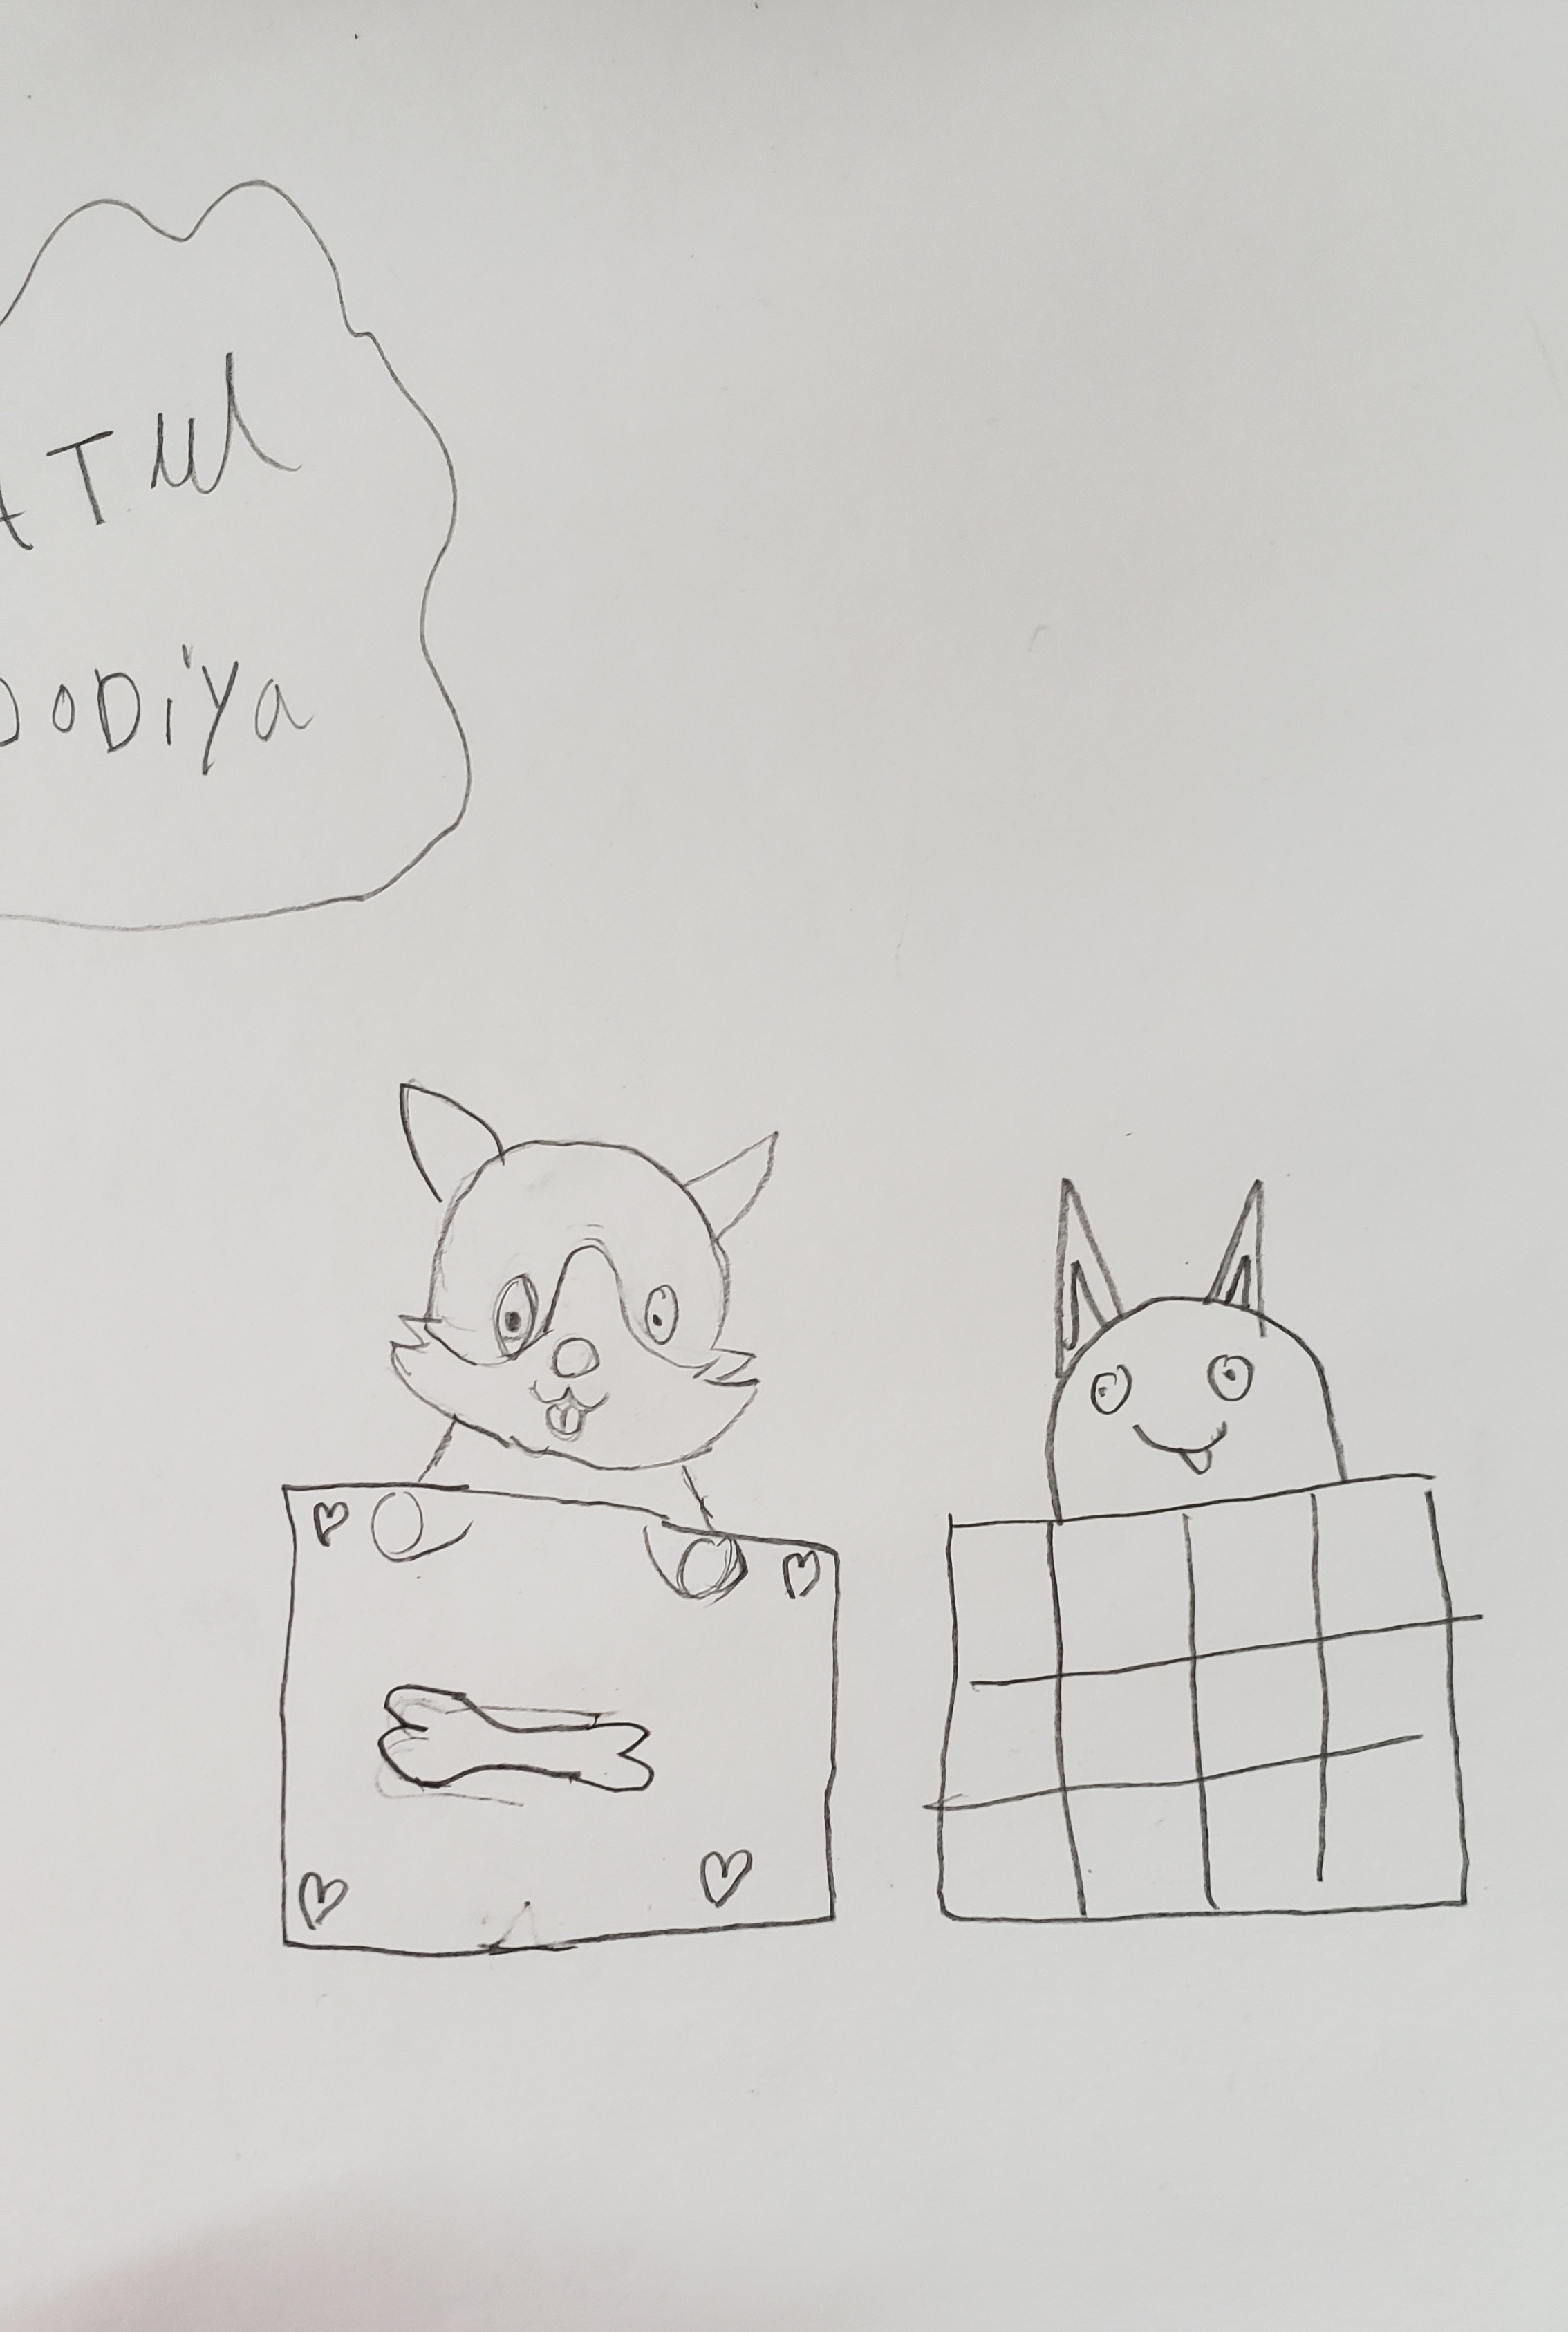 ATul
DoDiya